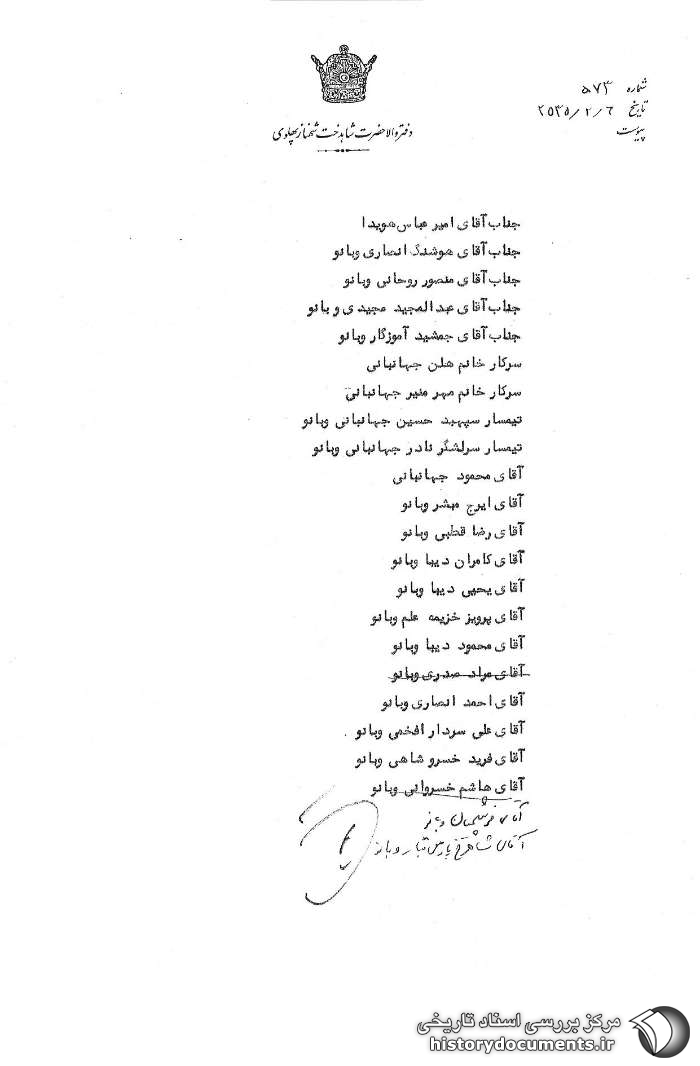 شماره ۵۷۳
تاریخ ۲۵۳۵/۲/۶
پیوست
دفتر والاحضرت شاهدخت شهناز پهلوی
جناب آقای امیر عباس هویدا
جناب آقای هوشنگ انصاری وبانو
جناب آقای منصور روحانی وبانو
جناب آقای عبدالمجید مجیدی وبانو
جناب آقای جمشید آموزگار وبانو
سرکار خانم هلن جهانبانی
سرکار خانم مهر منیر جهانبانی
تیمسار سپهبد حسین جهانبانی وبانو
تیمسار سرلشگر نادر جهانبانی وبانو
آقای محمود جهانبانی
آقای ایرج مبشر وبانو
آقای رضا قطبی وبانو
آقای کامران دیبا وبانو
آقای یحیی دیبا وبانو
آقای پرویز خزیمه علم وبانو
آقای محمود دیبا وبانو
آقای مراد صدری وبانو
آقای احمد انصاری وبانو
آقای علی سردار افخمی وبانو .
آقای فرید خسرو شاهی وبانو
آقای هاشم خسروانی وبانو
آقای وبانو
آقای شاهرخ پارس تبار وبانو
مرکز بررسی اسناد تاریخی
historydocuments.ir